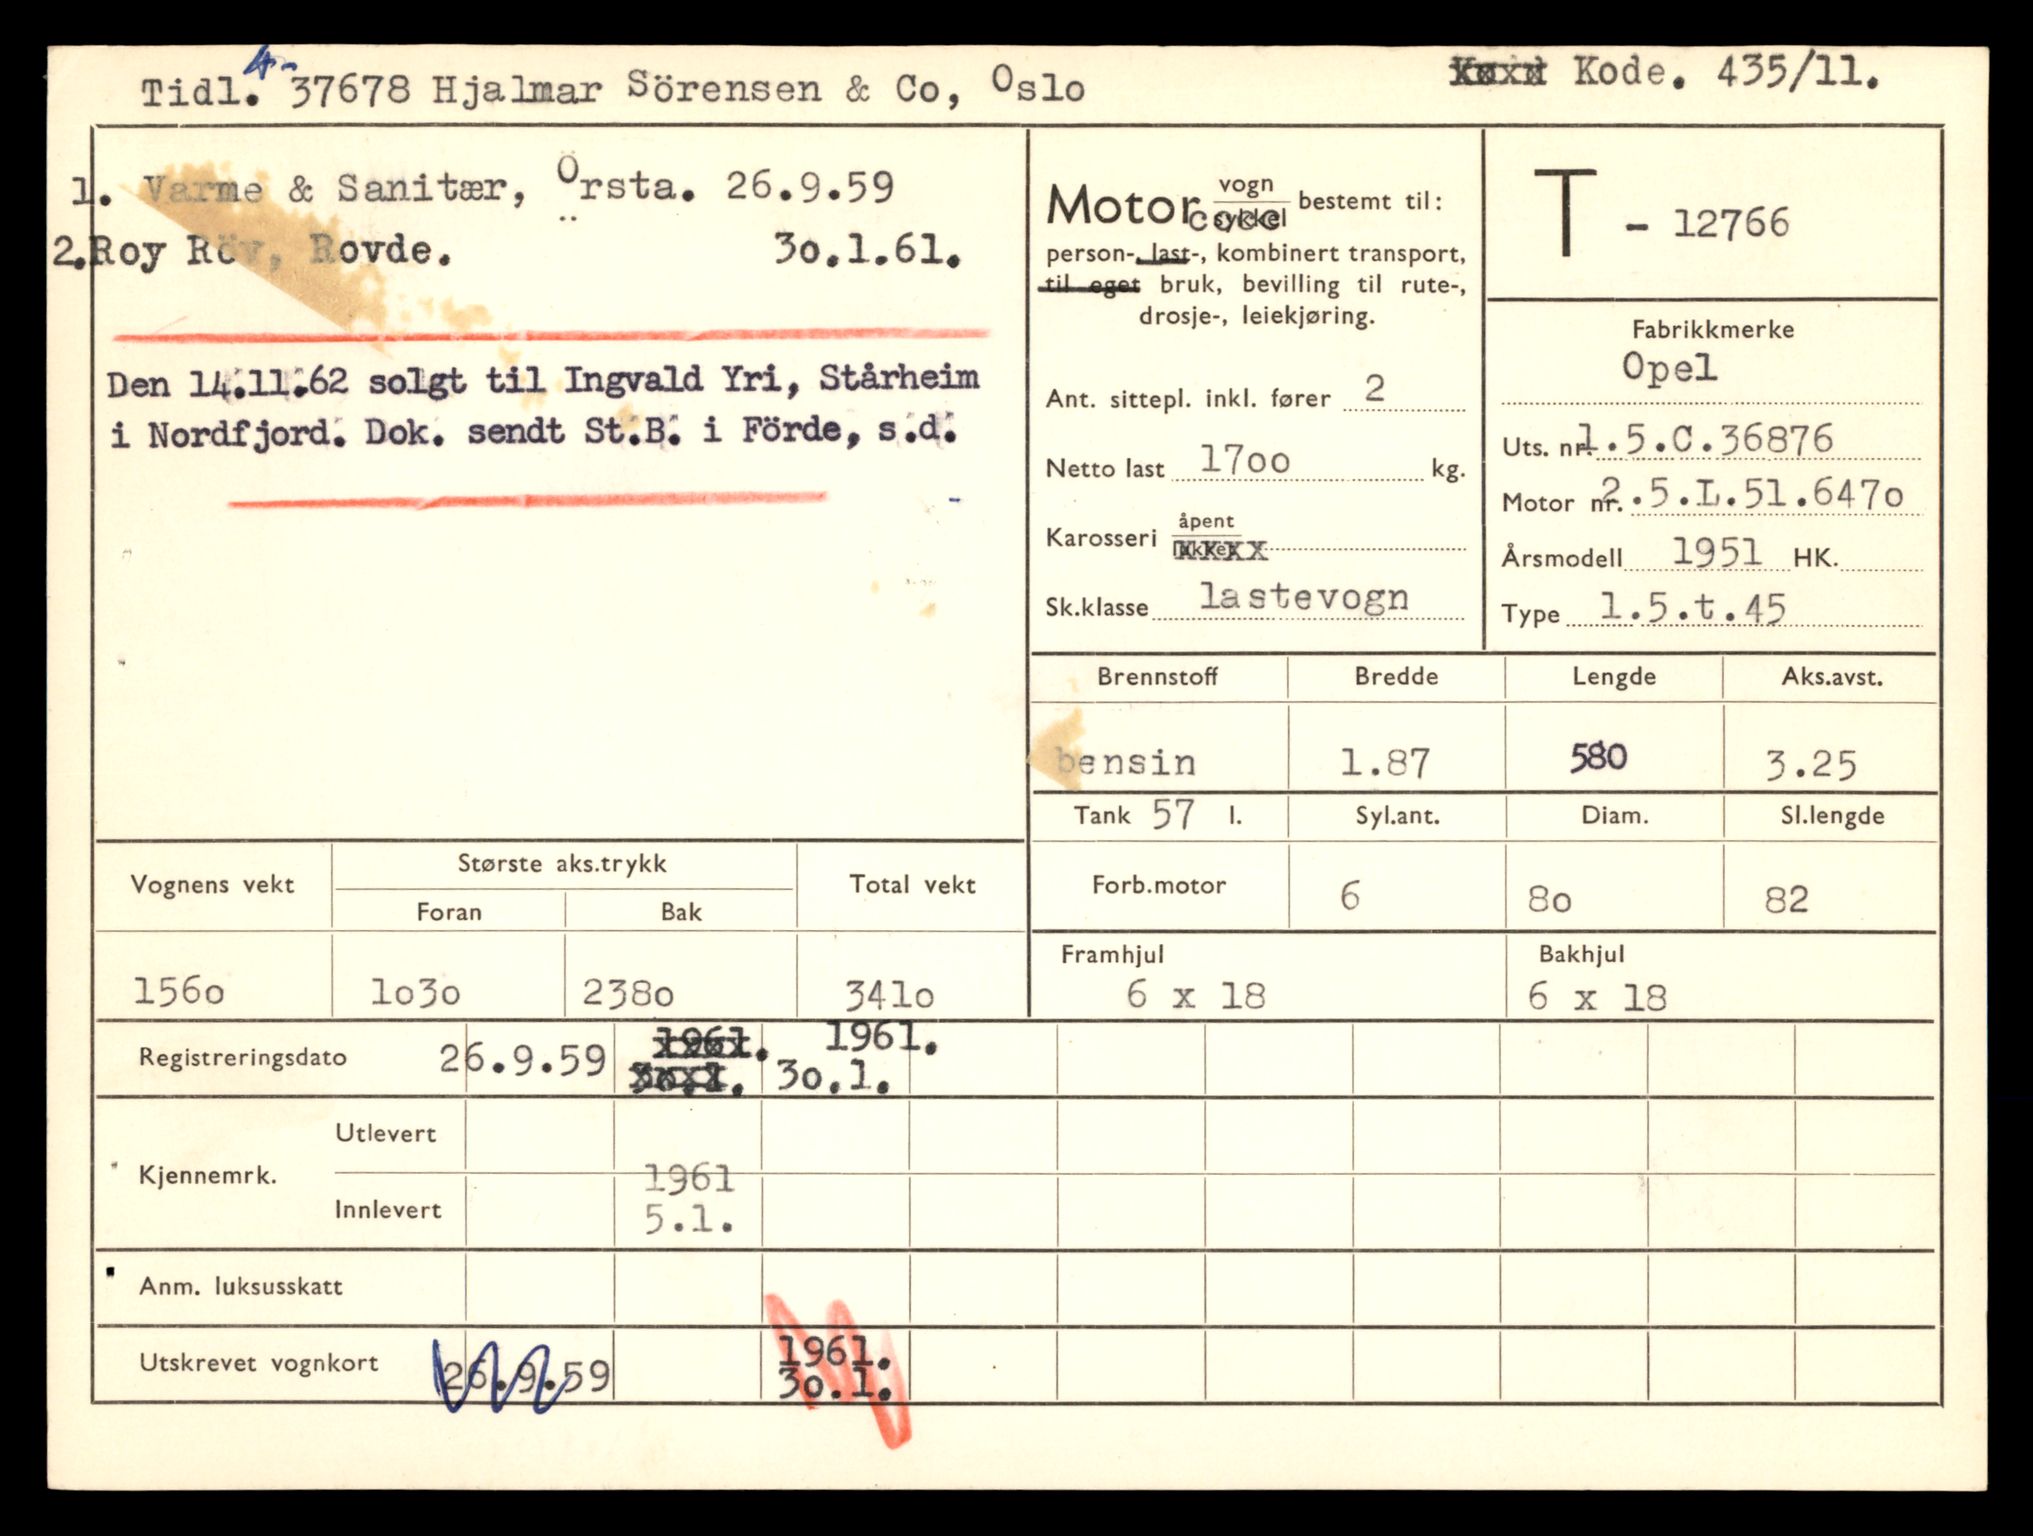 A-
Tidl. 37678 Hjalmar Sörensen & Co, Oslo
Kode. 435/11.
1. Varme & Sanitær, Örsta. 26.9.59
2.Roy Röv, Rovde. 30.1.61.
Den 14.11.62 solgt til Ingvald Yri, Stårheim
i Nordfjord. Dok. sendt St.B. i Förde, s.d.
Motor vogn sykkel bestemt til:
person-, last-, kombinert transport,
til eget bruk, bevilling til rute-,
drosje-, leiekjøring.
Ant. sittepl. inkl. fører 2
Netto last 1700 kg.
Karosseri åpent lukket
Sk.klasse lastevogn
T - 12766
Fabrikkmerke
Opel
Uts. nr. 1.5.C.36876
Motor nr. 2.5.L.51.6470
Årsmodell 1951 HK.
Type 1.5.t.45
Brennstoff Bredde Lengde Aks.avst.
bensin 1.87 580 3.25
Tank 57 l. Syl.ant. Diam. Sl.lengde
Forb.motor 6 80 82
Framhjul Bakhjul
6 x 18 6 x 18
Vognens vekt Største aks.trykk Total vekt
Foran Bak
1560 1030 2380 3410
1961. 1961.
Registreringsdato 26.9.59 30.1. 30.1.
Utlevert
Kjennemrk. 1961
Innlevert 5.1.
Anm. luksusskatt
1961.
Utskrevet vognkort 26.9.59 30.1.